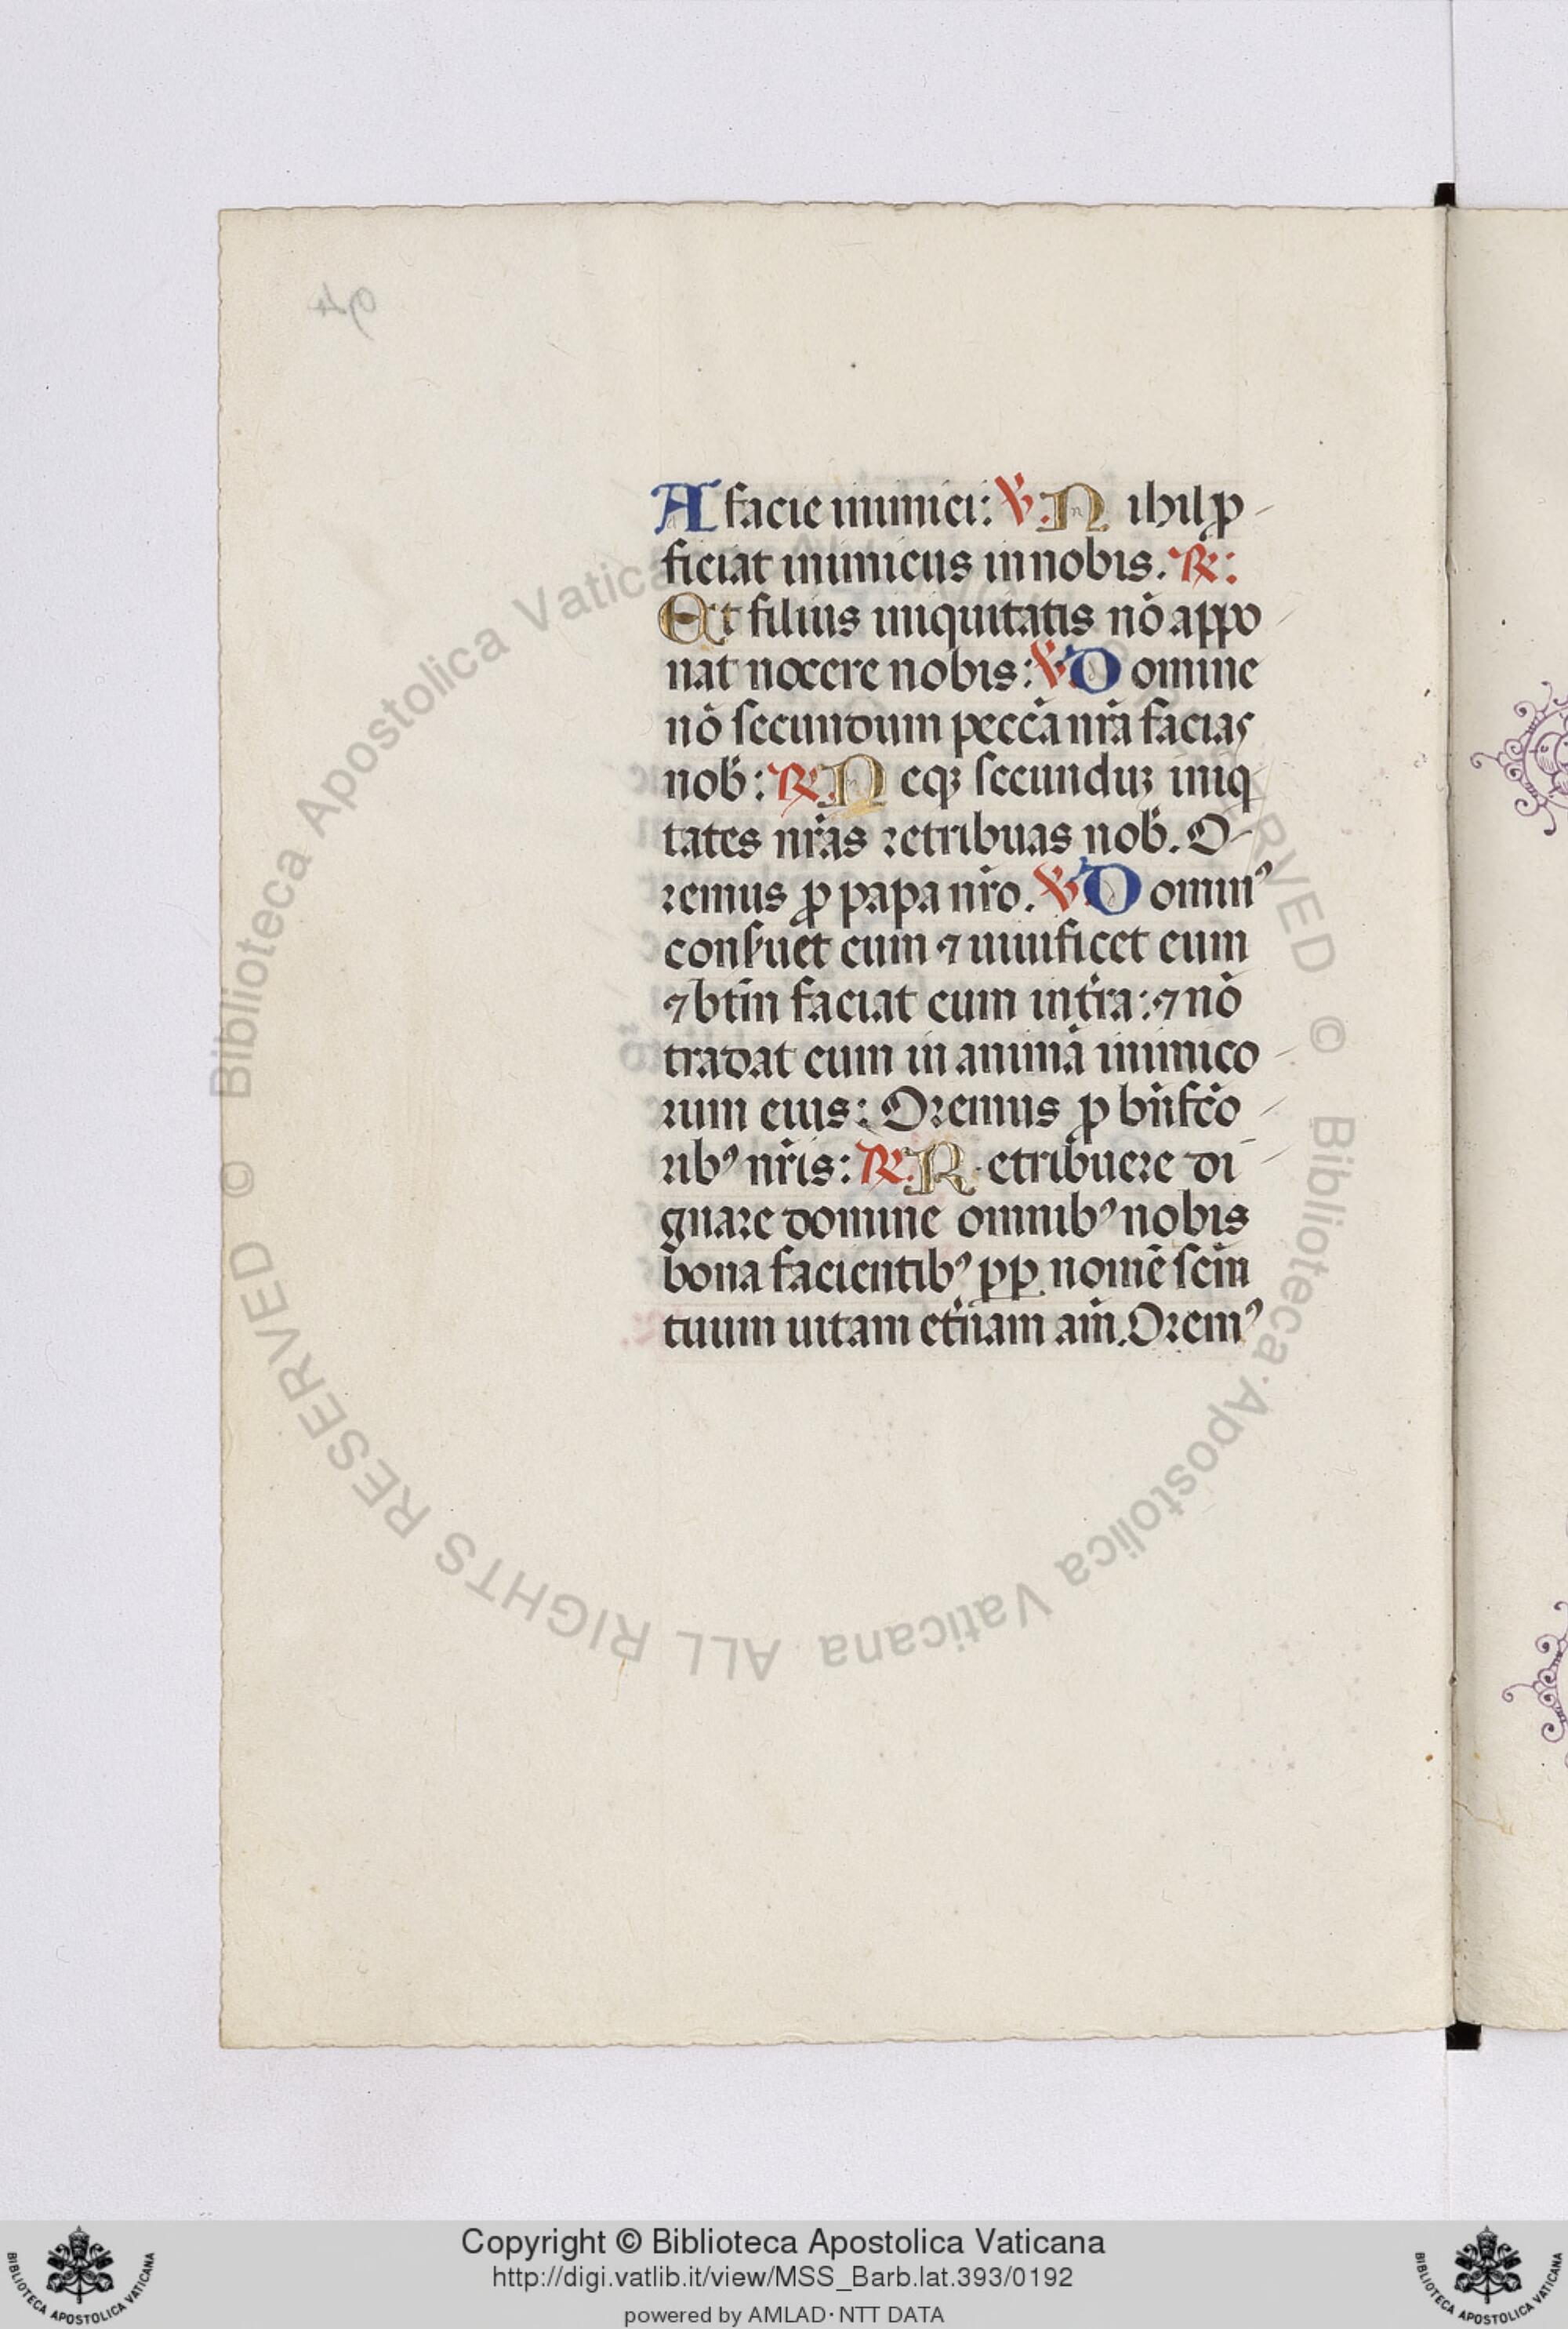 A facie inimici: ℣. Nihil ꝓ
ficiat inimicus in nobis. ℟:
Et filius iniquitatis nō appo
nat nocere nobis: ℣ Domine
nō secundum peccā nr̄a facias
nob̄: ℟. Neqꝫ secunduꝫ iniq
tates nr̄as retribuas nob̄. O-
remus ꝓ papa nr̄o. ℣ Dominꝰ
conẜuet eum ⁊ uiuificet eum
⁊ btm̄ faciat eum in tr̄a: ⁊ nō
tradat eum in animā inimico
rum eius: Oremus ꝓ bn̄fc̄o
ribꝰ nr̄is: ℟. Retribuere di
gnare domine omnibꝰ nobis
bona facientibꝰ ꝓp nomē scm̄
tuum uitam etn̄am am̄. Oremꝰ
© Biblioteca Apostolica Vaticana ALL RIGHTS RESERVED © Biblioteca Apostolica Vaticana ALL RIGHTS RESERVED
Copyright © Biblioteca Apostolica Vaticana
http://digi.vatlib.it/view/MSS_Barb.lat.393/0192
powered by AMLAD·NTT DATA
BIBLIOTECA APOSTOLICA VATICANA
BIBLIOTECA APOSTOLICA VATICANA